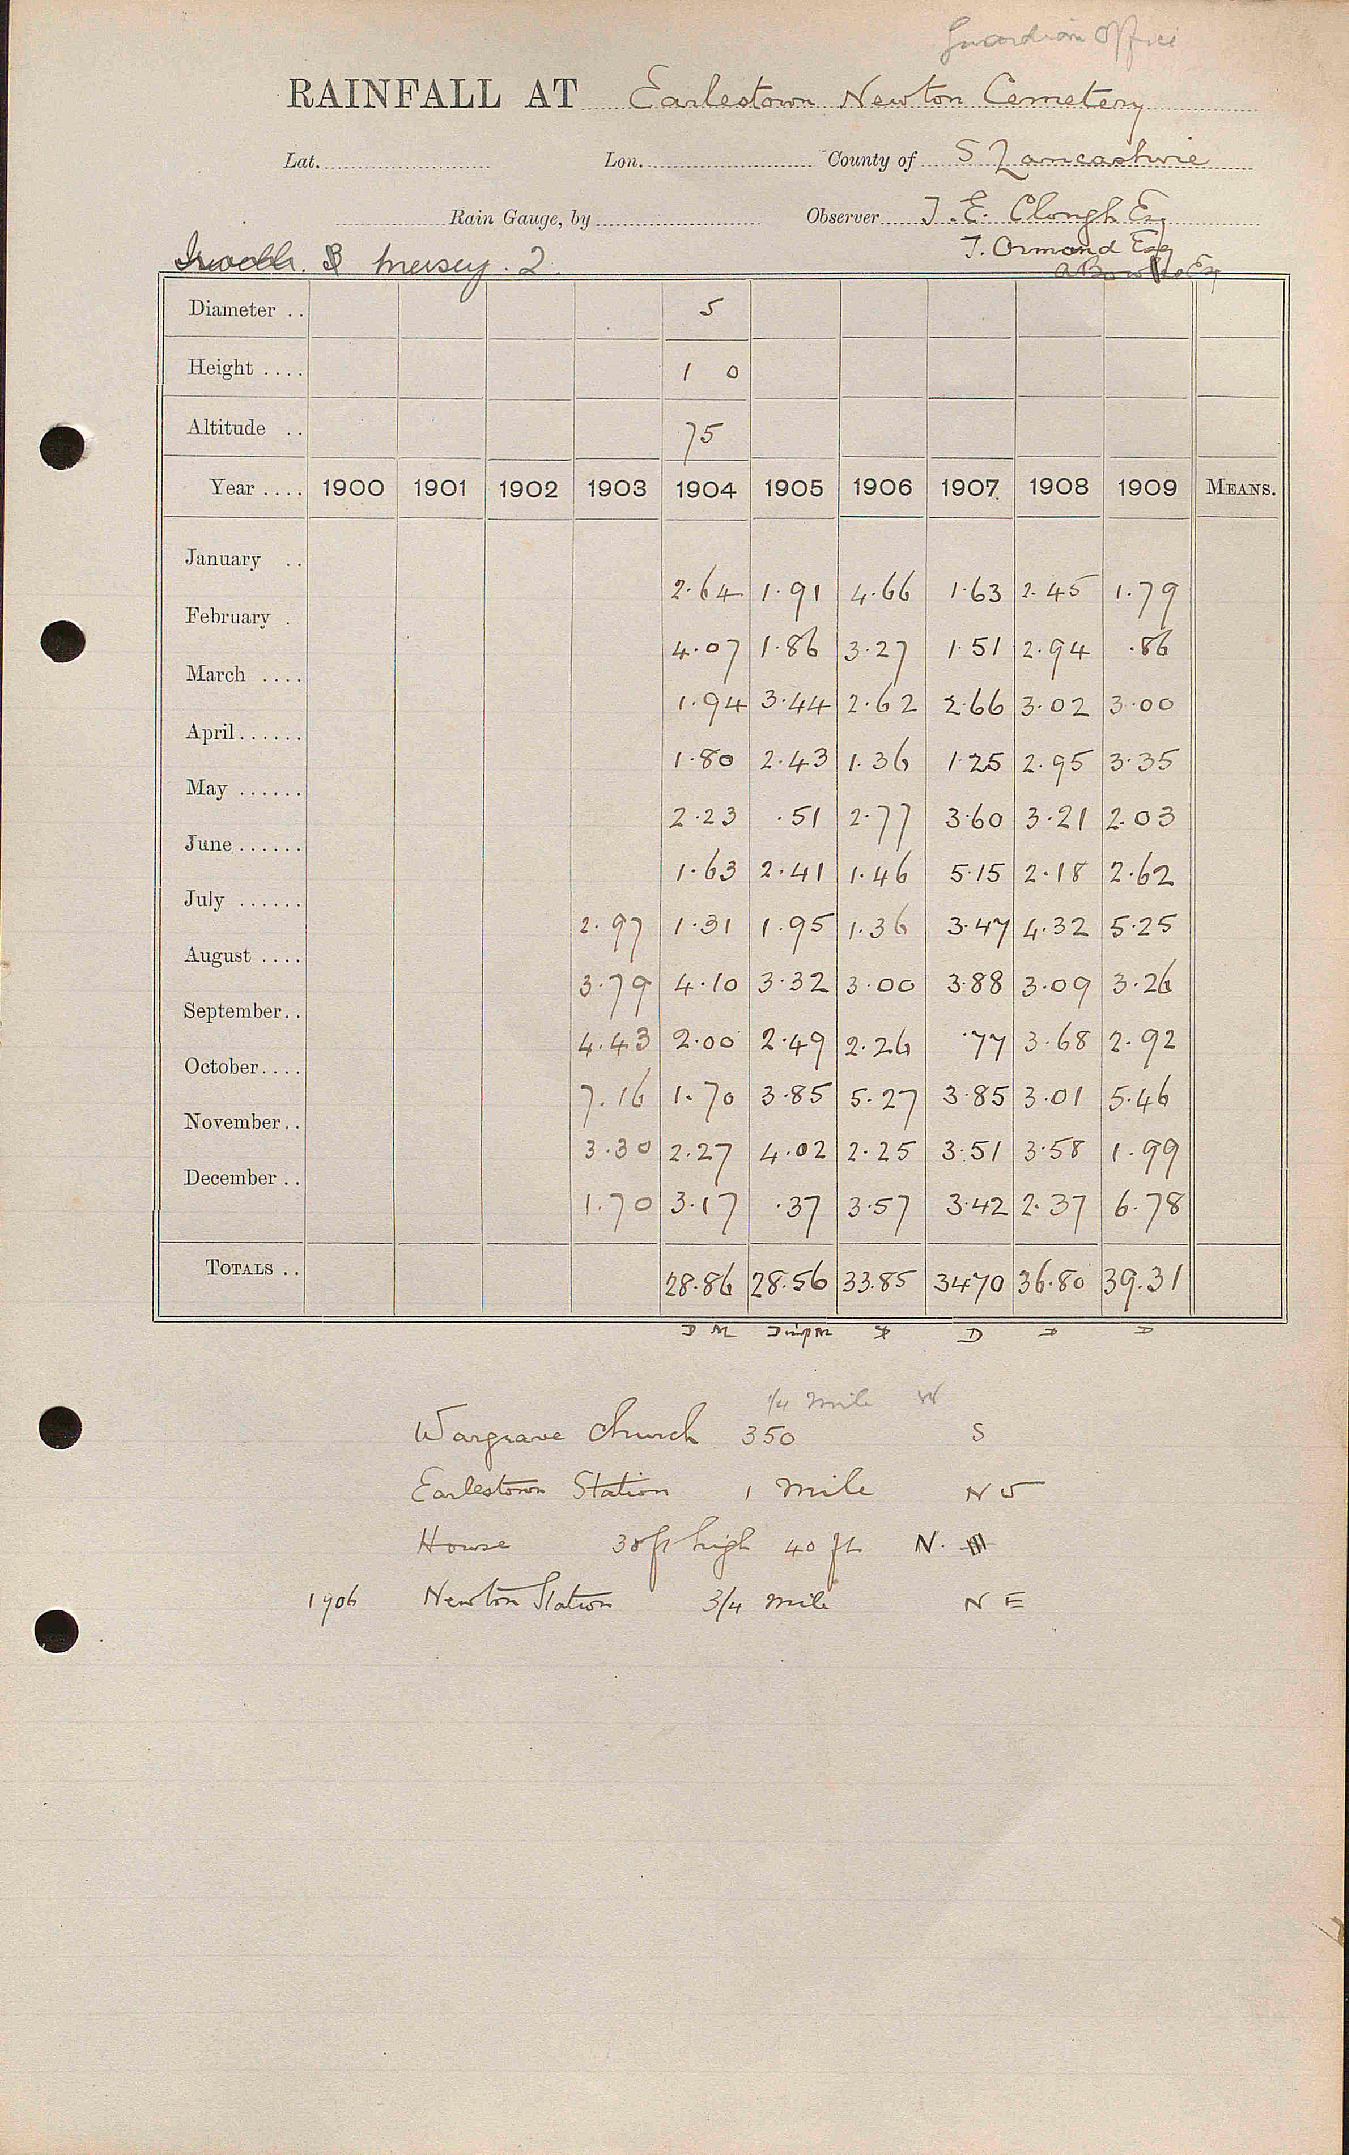 Guardian Office
RAINFALL AT Earlestown Newton Cemetery
Lat. Lon. County of S Lancashire
Rain Gauge, by Observer J. E. Clough Esq
T. Ormond Esq
Mersey. 2.
Diameter .. 5
Height .... 1 0
Altitude .. 75
Year .... 1900 1901 1902 1903 1904 1905 1906 1907 1908 1909 MEANS.
January .. 2.64 1.91 4.66 1.63 2.45 1.79
February . 4.07 1.86 3.27 1.51 2.94 .86
March .... 1.94 3.44 2.62 2.66 3.02 3.00
April...... 1.80 2.43 1.36 1.25 2.95 3.35
May ...... 2.23 .51 2.77 3.60 3.21 2.03
June...... 1.63 2.41 1.46 5.15 2.18 2.62
July ...... 2.97 1.31 1.95 1.36 3.47 4.32 5.25
August .... 3.79 4.10 3.32 3.00 3.88 3.09 3.26
September.. 4.43 2.00 2.49 2.26 .77 3.68 2.92
October.... 7.16 1.70 3.85 5.27 3.85 3.01 5.46
November.. 3.30 2.27 4.02 2.25 3.51 3.58 1.99
December .. 1.70 3.17 .37 3.57 3.42 2.37 6.78
TOTALS .. 28.86 28.56 33.85 34.70 36.80 39.31
D M D D D D
1/4 mile W
Wargrave Church 350 S
Earlestown Station 1 Mile N W
House 30ft high 40 ft N.
1906 Newton Station 3/4 mile N E